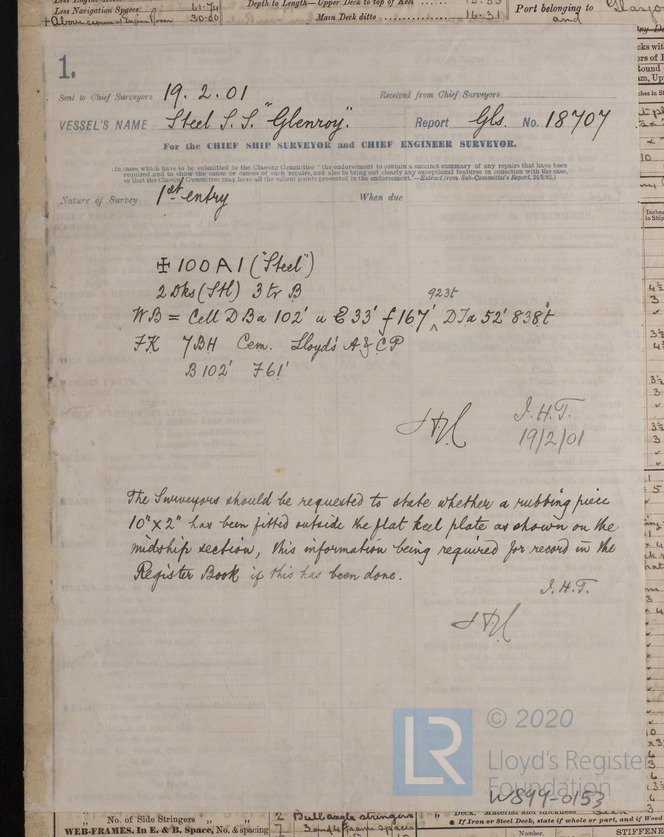 Less Navigation Spaces 61.74
+ Above crown of Engine Room 30.00
Depth to Length—Upper Deck to top of Keel
Main Deck ditto 16.31
Port belonging to Glasgo
and
1.
Sent to Chief Surveyors 19.2.01 Received from Chief Surveyors
VESSEL'S NAME Steel S.S. "Glenroy". Report Gls. No. 18707
For the CHIEF SHIP SURVEYOR and CHIEF ENGINEER SURVEYOR.
(In cases which have to be submitted to the Classing Committee "the endorsement to contain a succinct summary of any repairs that have been
required and to show the cause or causes of such repairs, and also to bring out clearly any exceptional features in connection with the case,
so that the Classing Committee may have all the salient points presented in the endorsement."—Extract from Sub-Committee's Report,
Nature of Survey 1st entry When due
✠ 100 A 1 ("Steel")
2 Dks (Stl) 3 tr B
923t
WB = Cell D B a 102' u E 33' f 167' ^ D Ta 52' 838t
FK 7BH Cem. Lloyd's A & CP
B 102' F 61'
J.H.T.
19/2/01
The Surveyors should be requested to state whether a rubbing piece
10" x 2" has been fitted outside the flat keel plate as shown on the
midship section, this information being required for record in the
Register Book if this has been done.
J.H.T.
LR © 2020
Lloyd's Register
Foundation
W899-0153
No. of Side Stringers " " 2 Bulb angle stringers
WEB-FRAMES. In E. & B. Space, No. & spacing 7
Deck. Material and thickness
If Iron or Steel Deck, state if whole or part, and if Wood
STIFFE